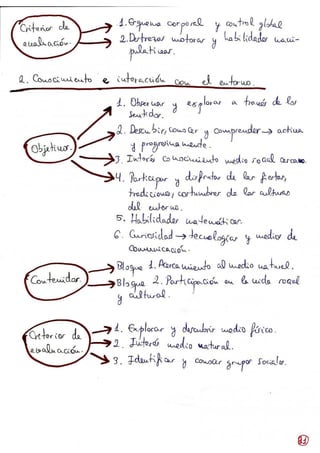 Criterios de
evaluación.
1. Esquema corporal y control global
2. Destrezas motoras y habilidades mani-
pulativas.
2. Conocimiento e interacción con el entorno.
Objetivos.
1. Observar y explorar a través de los
sentidos.
2. Descubrir, conocer y comprender → activa
y progresivamente.
3. Interés conocimiento medio social cercano.
4. Participar y disfrutar de las fiestas,
tradiciones, costumbres de la cultura
del entorno.
5. Habilidades matemáticas.
6. Curiosidad → tecnologías y medios de
comunicación.
Contenidos.
Bloque 1. Acercamiento al medio natural.
Bloque 2. Participación en la vida social
y cultural.
Criterios de
evaluación.
1. Explorar y descubrir medio físico.
2. Interés medio natural.
3. Identificar y conocer grupos sociales.